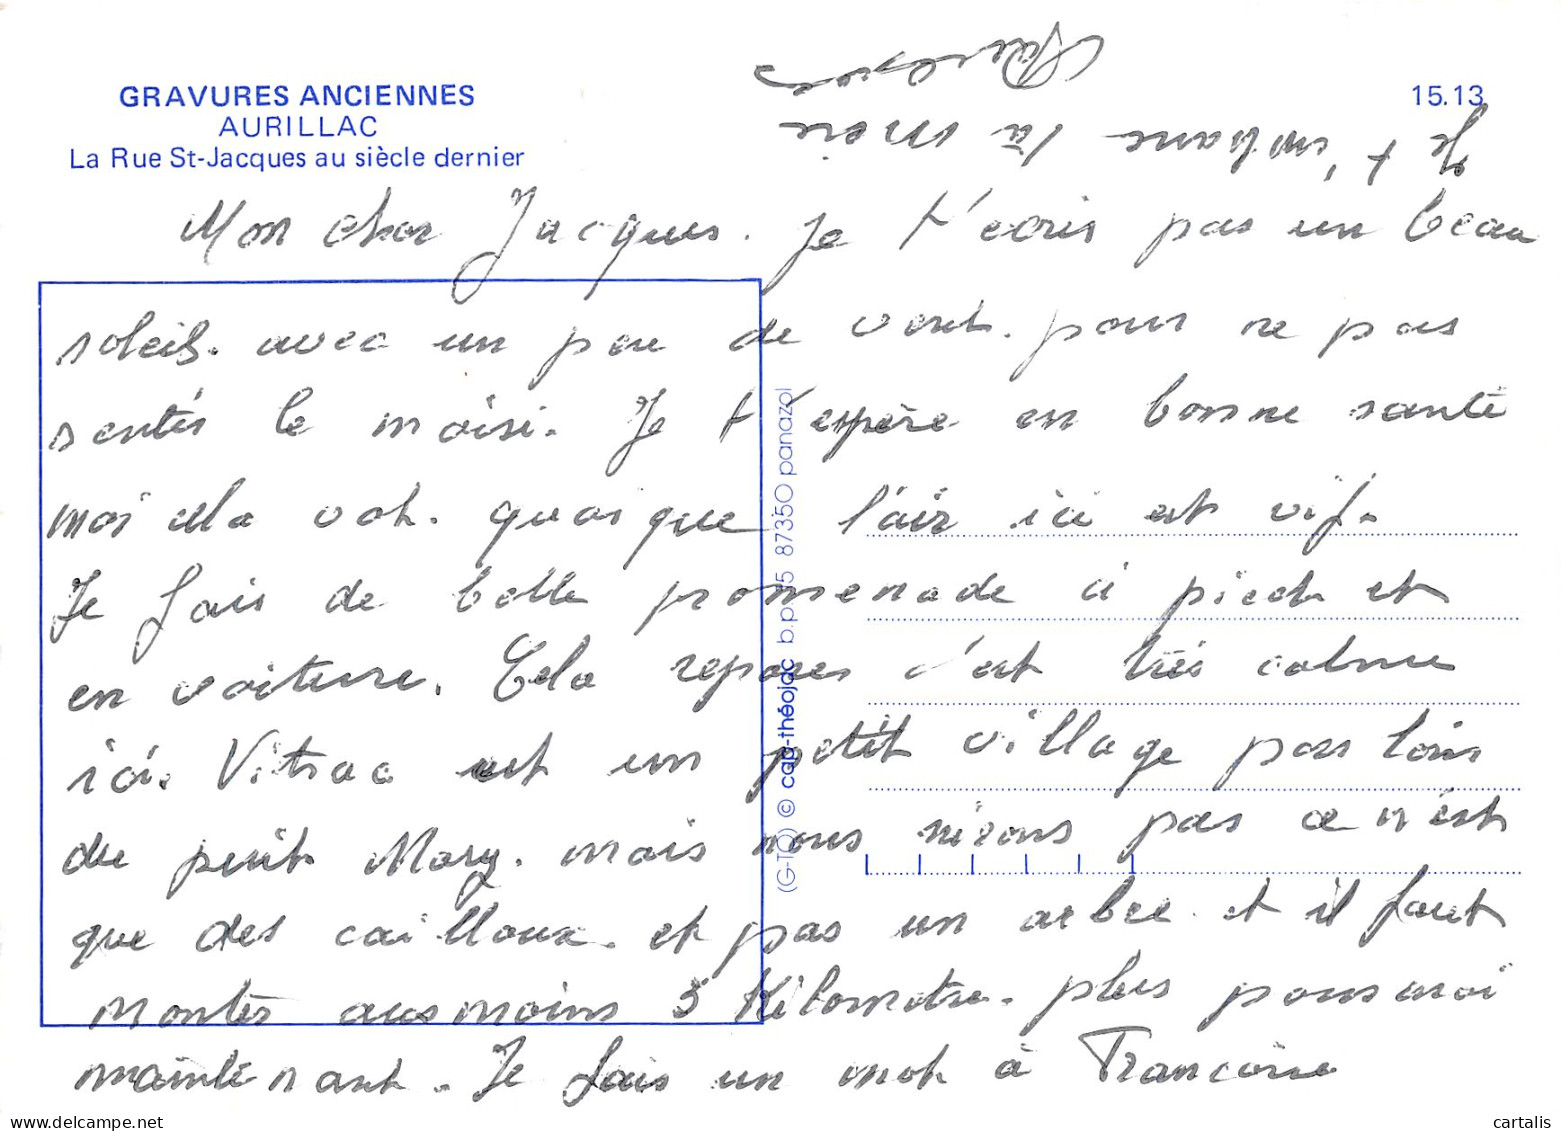 GRAVURES ANCIENNES
AURILLAC
La Rue St-Jacques au siècle dernier
15.13
Mon cher Jacques. Je t'ecris pas un beau
soleil. avec un peu de vent. pour ne pas
sentir le moisi. Je t'espère en bonne santé
moi cela vat. quoique l'air ici est vif.
Je fais de belle promenade à pied et
en voiture. Cela reposes c'est très calme
ici. Vitrac est un petit village pas loin
du petit Mary. mais nous pas ce n'est
que des cailloux. et pas un arbre. et il faut
monter aus moins 5 Kilometre. plus pour moi
maintenant. Je fais un mot à Francoise
Je t'embrasse
(G-TO) © cap-théojac b.p 15 87350 panazol
cartalis